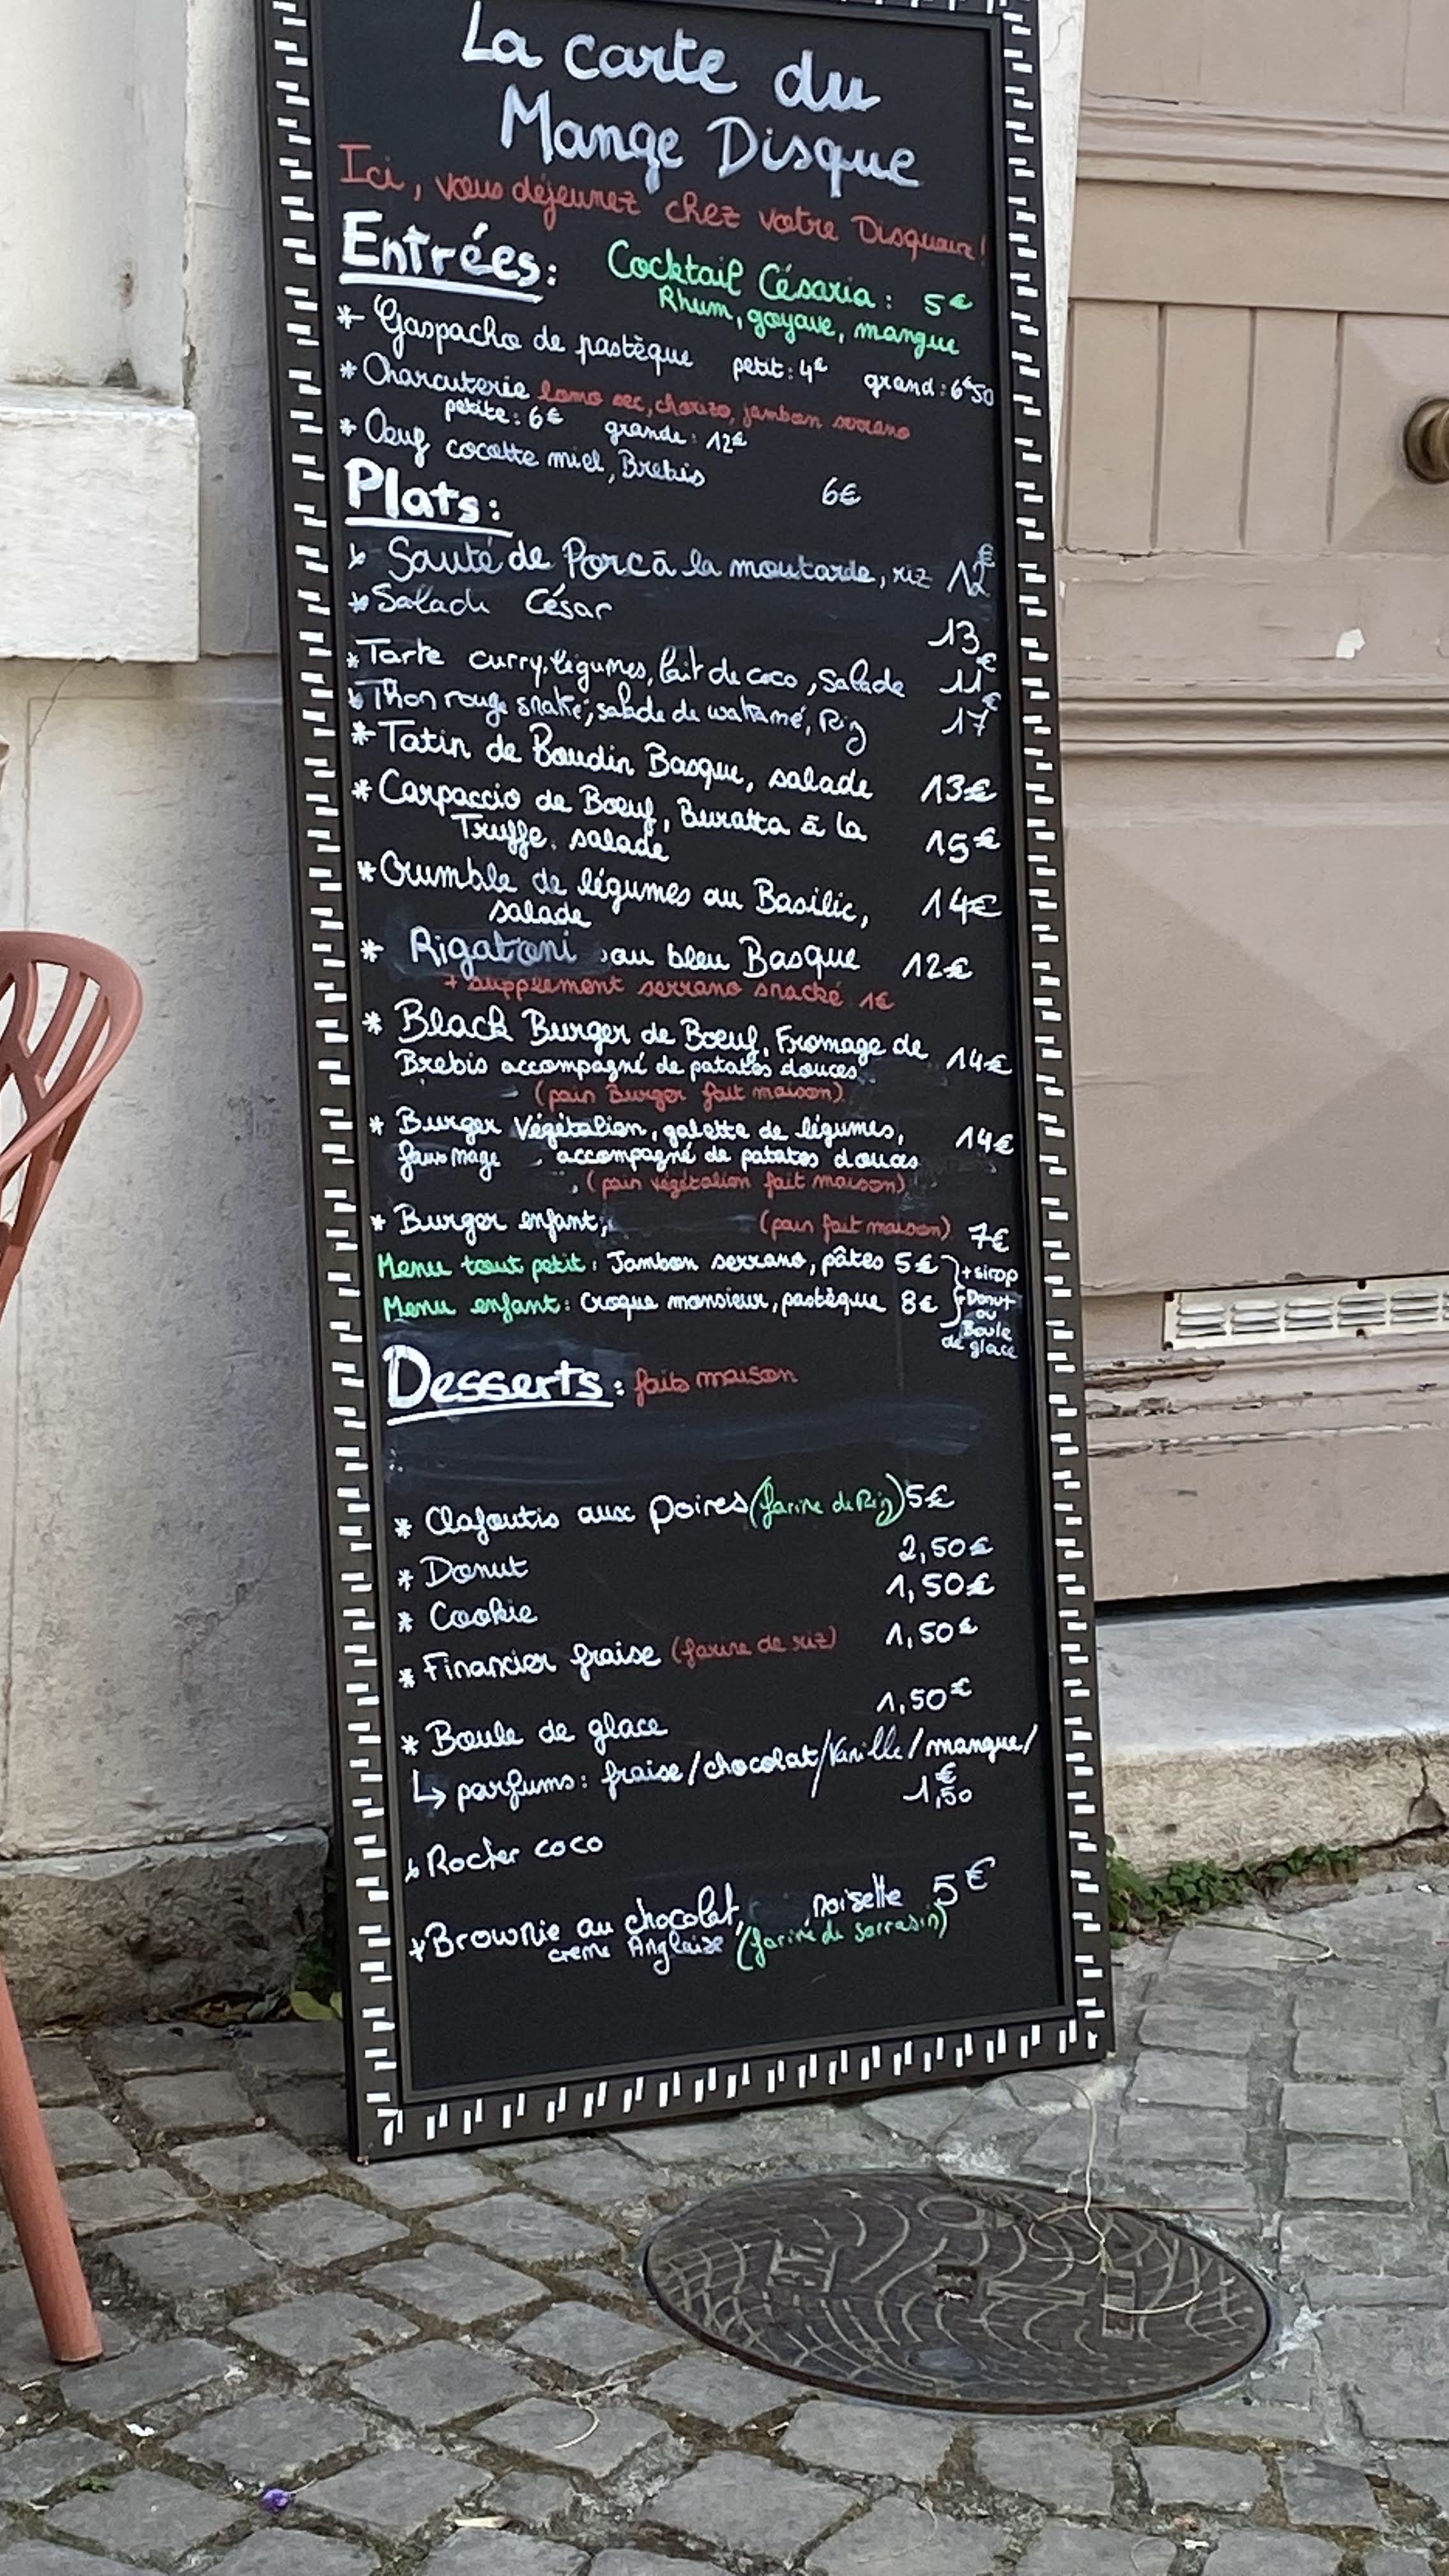 La carte du
Mange Disque
Ici, vous déjeunez chez votre Disquaire!
Entrées:
Cocktail Césaria: 5€
Rhum, goyave, mangue
* Gaspacho de pastèque petit: 4€ grand: 6€50
* Charcuterie lomo sec, chorizo, jambon serrano
petite: 6€ grande: 12€
* Oeuf cocotte miel, Brebis 6€
Plats:
* Sauté de Porc à la moutarde, riz 12€
* Salade César 13
* Tarte curry, légumes, lait de coco, Salade 11€
* Thon rouge snaké, salade de wakamé, Riz 17€
* Tatin de Boudin Basque, salade 13€
* Carpaccio de Boeuf, Buratta à la 15€
Truffe, salade
* Crumble de légumes au Basilic, 14€
salade
* Rigatoni au bleu Basque 12€
+ supplément serrano snacké 1€
* Black Burger de Boeuf, Fromage de 14€
Brebis accompagné de patates douces
(pain Burger fait maison)
* Burger Végétalien, galette de légumes, 14€
faux mage accompagné de patates douces
(pain végétalien fait maison)
* Burger enfant, (pain fait maison) 7€
Menu tout petit: Jambon serrano, pâtes 5€
Menu enfant: Croque monsieur, pastèque 8€
+ sirop
+ Donut
ou
Boule
de glace
Desserts: faits maison
* Clafoutis aux poires (farine de Riz) 5€
* Donut 2,50€
* Cookie 1,50€
* Financier fraise (farine de riz) 1,50€
* Boule de glace 1,50€
↳ parfums: fraise/chocolat/Vanille/mangue/
* Rocher coco 1,50€
* Brownie au chocolat, noisette 5€
creme Anglaise (farine de sarrasin)